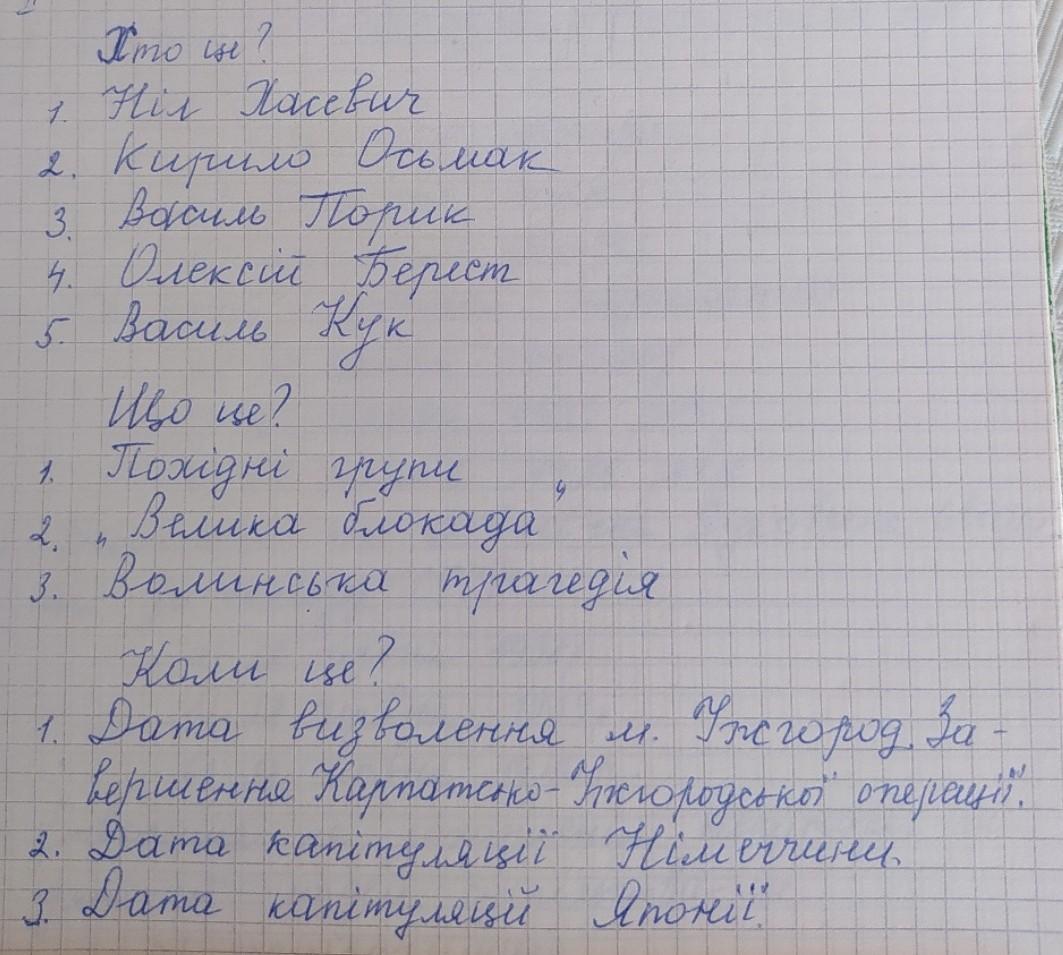 Хто це?
1. Ніл Хасевич
2. Кирило Осьмак
3. Василь Порик
4. Олексій Берест
5. Василь Кук
Що це?
1. Похідні групи
2. „Велика блокада"
3. Волинська трагедія
Коли це?
1. Дата визволення м. Ужгород. За-
вершення Карпатсько-Ужгородської операції.
2. Дата капітуляції Німеччини.
3. Дата капітуляцій Японії.